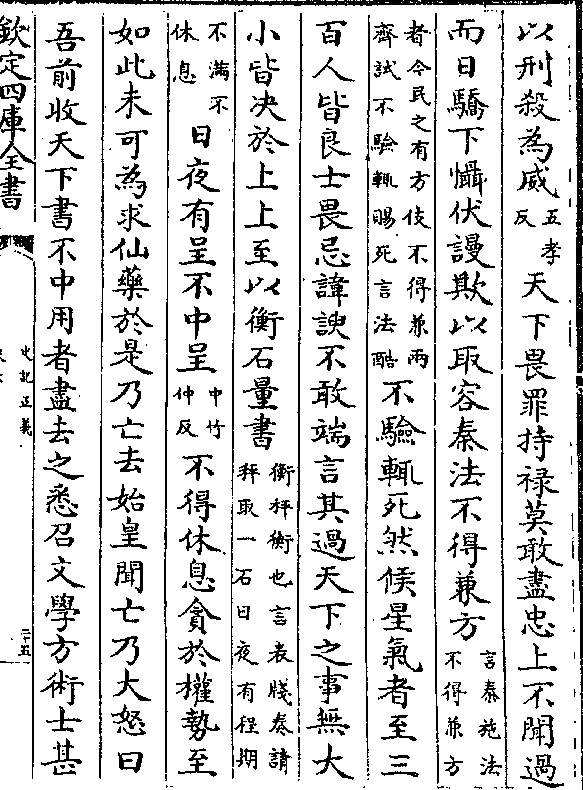 以刑殺為威五孝反天下畏罪持禄莫敢盡忠上不聞過
而日驕下懾伏謾欺以取容秦法不得兼方言秦施法不得兼方
者令民之有方伎不得兼兩齊試不驗輒賜死言法酷不驗輒死然候星氣者至三
百人皆良士畏忌諱諛不敢端言其過天下之事無大
小皆决於上上至以衡石量書衡秤衡也言表牋奏請秤取一石日夜有程期
不滿不休息日夜有呈不中呈中竹仲反不得休息貪於權勢至
如此未可為求仙藥於是乃亡去始皇聞亡乃大怒曰
吾前收天下書不中用者盡去之悉召文學方術士甚
欽定四庫全書
史記正義
三十五